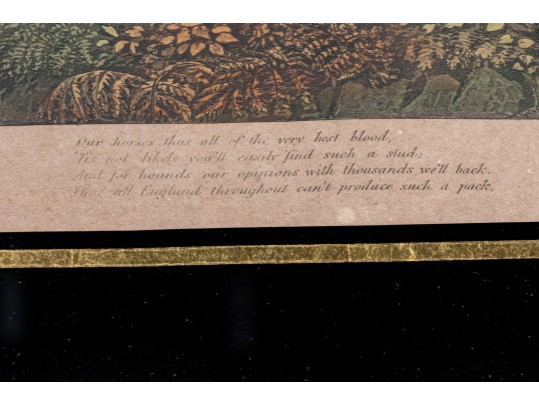 Our horses thus all of the very best blood,
'Tis not likely you'll easily find such a stud;
And for hounds our opinions with thousands we'll back.
That all England throughout can't produce such a pack.